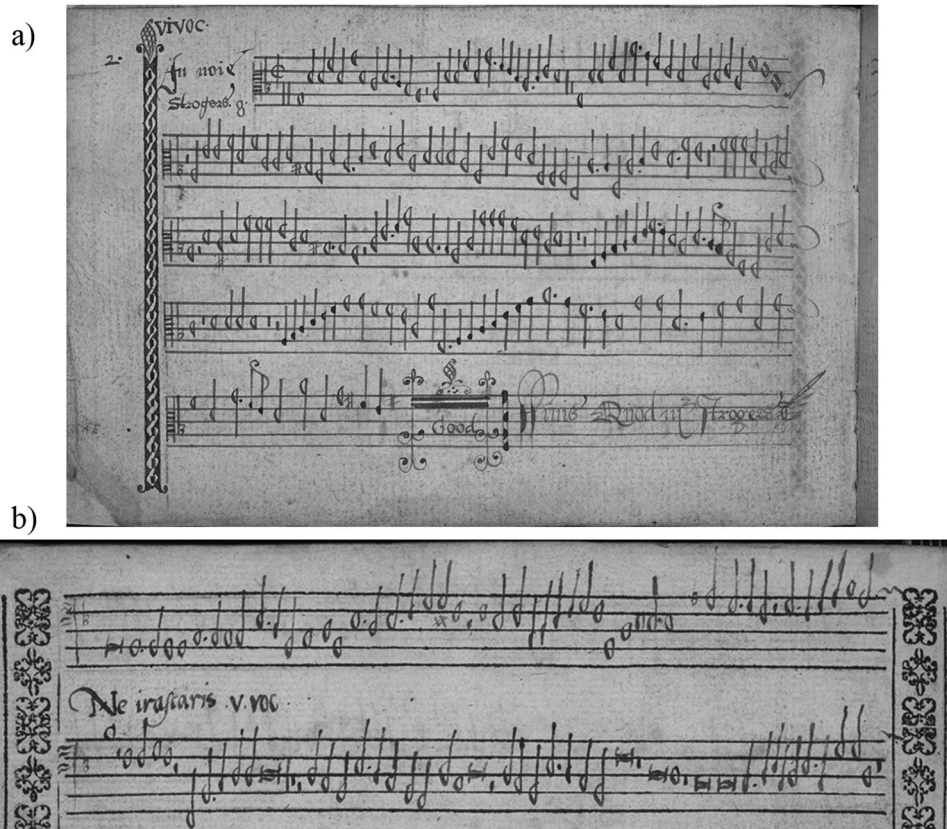 a)
VI VOC.
2.
In noie
Strogers. 6.
Good
Finis Quod mr Strogers
b)
Ne irascaris . v. voc